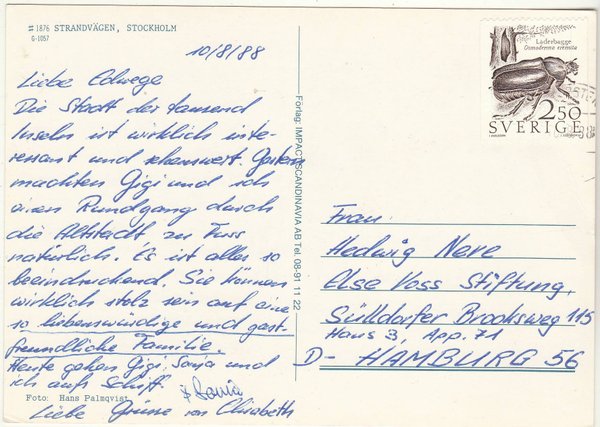 1876 STRANDVÄGEN, STOCKHOLM
G-1057
10/8/88
Liebe Edwege
Die Stadt der tausend
Inseln ist wirklich inte-
ressant und sehenswert. Gestern
machten Gigi und ich
einen Rundgang durch
die Altstadt zu Fuss
natürlich. Es ist alles so
beeindruckend. Sie können
wirklich stolz sein auf eine
so liebenswürdige und gast-
freundliche Familie.
Heute gehen Gigi, Sonja und
ich aufs Schiff.
Sonja
Liebe Grüsse von Elisabeth
Foto: Hans Palmqvist
Förlag: IMPACT SCANDINAVIA AB Tel. 08-91 11 22
Läderbagge
Osmoderma eremita
2.50
SVERIGE
Frau
Hedwig Neve
Else Voss Stiftung,
Sülldorfer Brooksweg 115
Haus 3, App. 71
D- HAMBURG 56